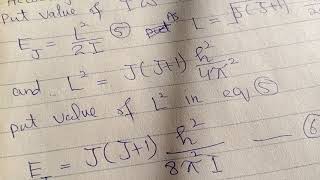 put value of I ω
E_J = L²/2I ⑤ As L = J(J+1)
and L² = J(J+1) h²/4π²
put value of L² in eq ⑤
E_J = J(J+1) h²/8π²I — ⑥